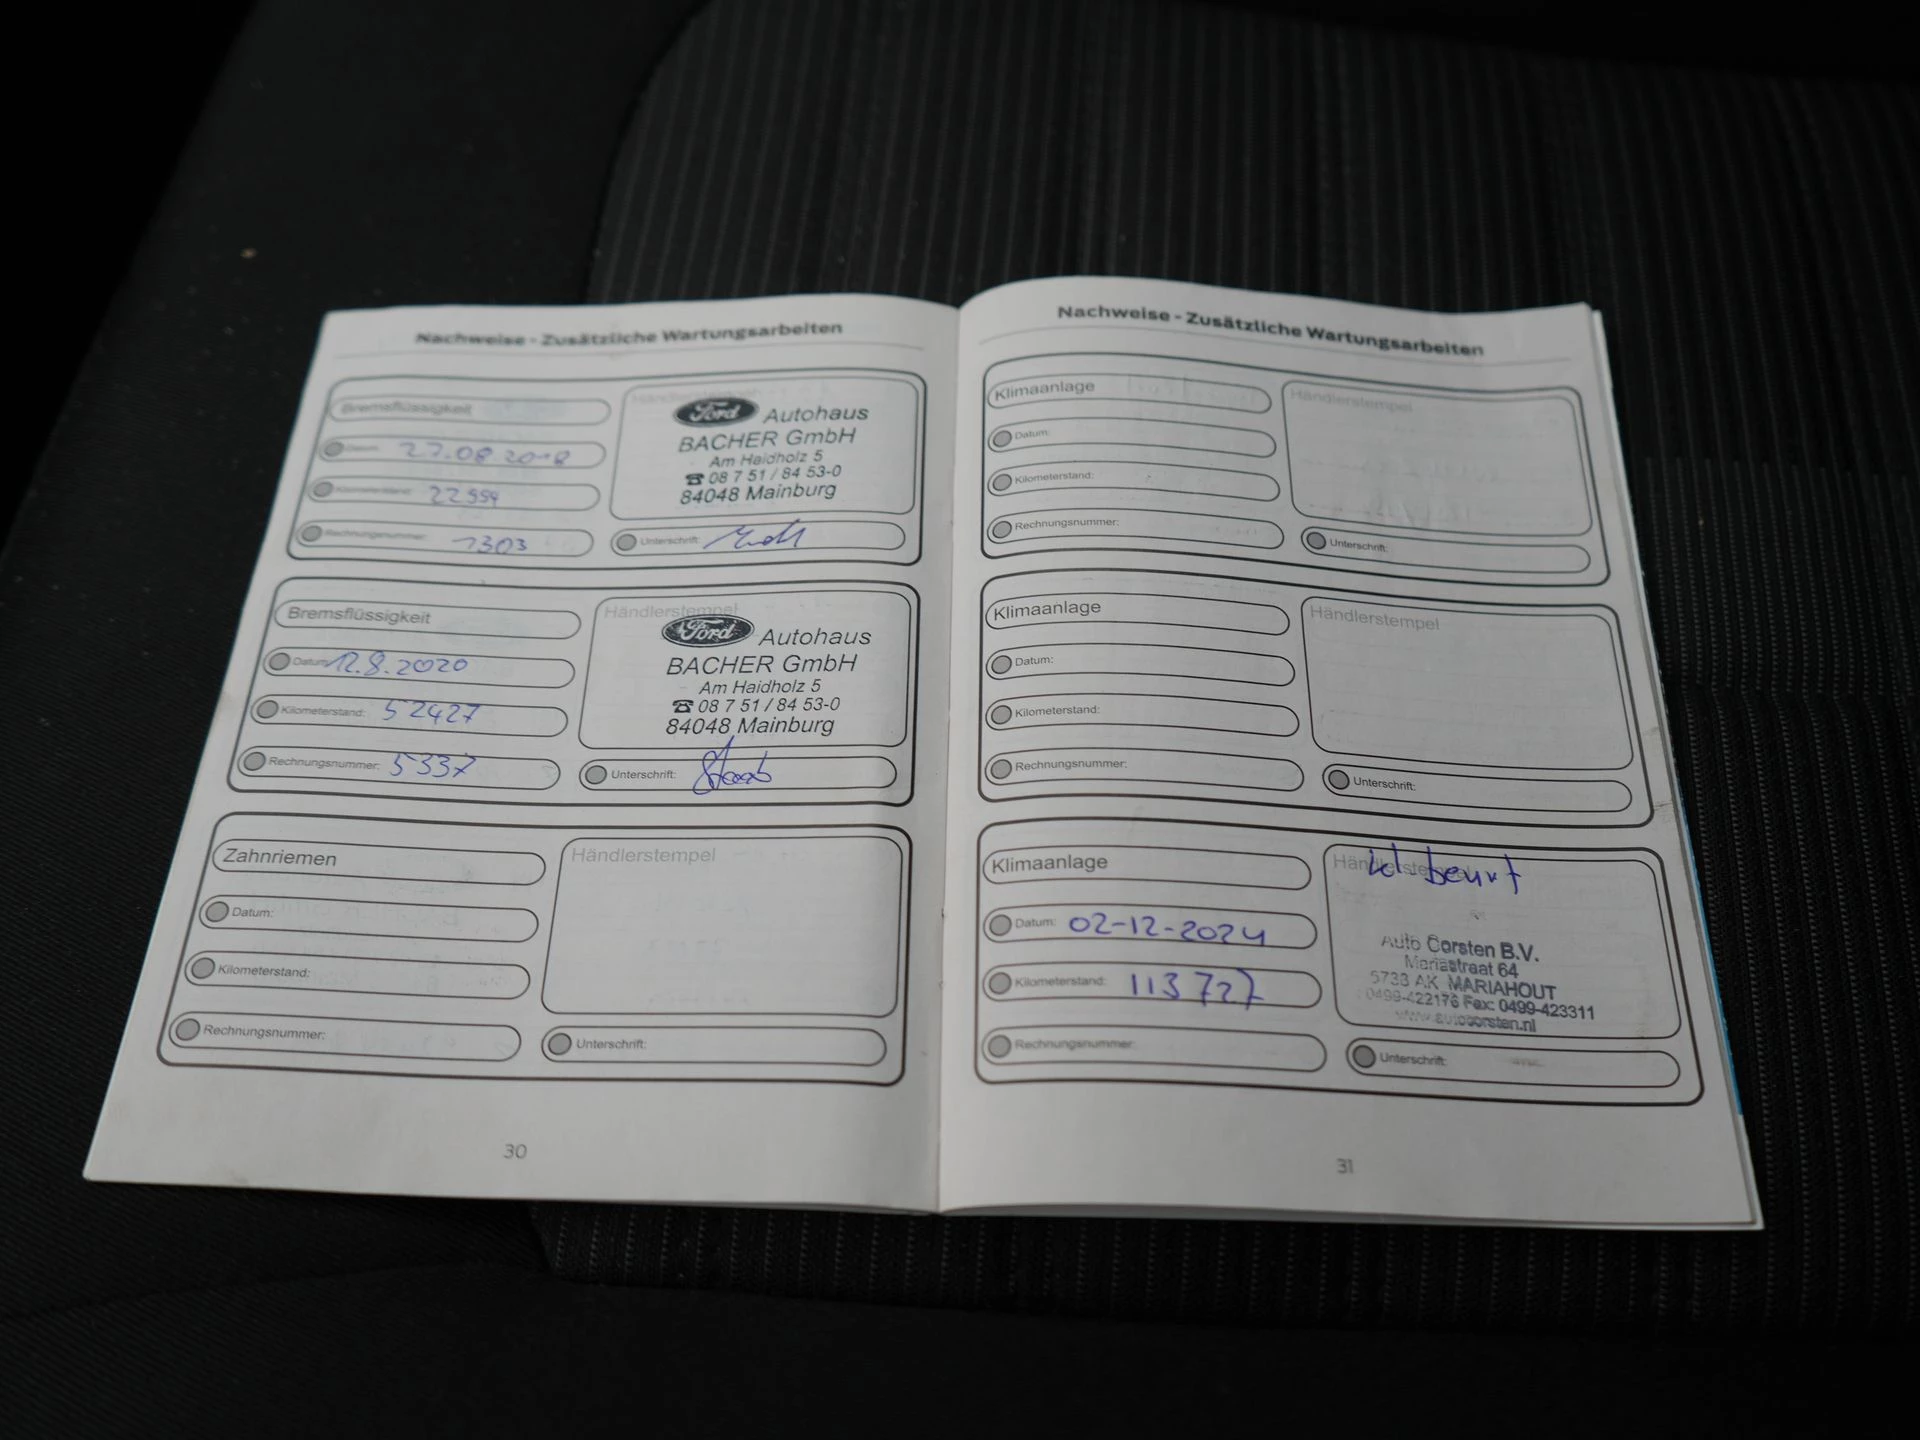 Nachweise - Zusätzliche Wartungsarbeiten
Bremsflüssigkeit
Datum: 27.08.2018
Kilometerstand: 22554
Rechnungsnummer: 1303
Händlerstempel
Ford Autohaus
BACHER GmbH
Am Haidholz 5
☎ 08 7 51 / 84 53-0
84048 Mainburg
Unterschrift:
Bremsflüssigkeit
Datum: 12.8.2020
Kilometerstand: 52427
Rechnungsnummer: 5337
Händlerstempel
Ford Autohaus
BACHER GmbH
Am Haidholz 5
☎ 08 7 51 / 84 53-0
84048 Mainburg
Unterschrift:
Zahnriemen
Datum:
Kilometerstand:
Rechnungsnummer:
Händlerstempel
Unterschrift:
30
Nachweise - Zusätzliche Wartungsarbeiten
Klimaanlage
Datum:
Kilometerstand:
Rechnungsnummer:
Händlerstempel
Unterschrift:
Klimaanlage
Datum:
Kilometerstand:
Rechnungsnummer:
Händlerstempel
Unterschrift:
Klimaanlage
Datum: 02-12-2024
Kilometerstand: 113727
Rechnungsnummer:
Händlerstempel
beurt
Auto Corsten B.V.
Mariastraat 64
5738 AK MARIAHOUT
0499-422176 Fax: 0499-423311
www.autocorsten.nl
Unterschrift:
31